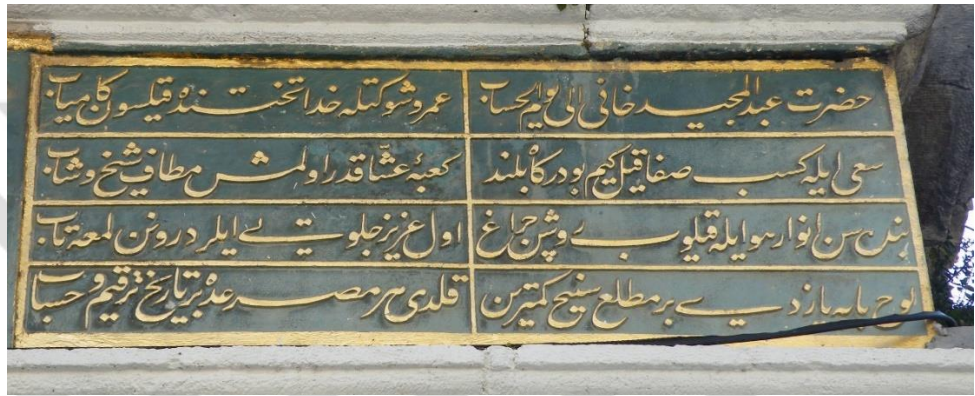 حضرت عبدالمجید خانی الی یوم الحساب عمر و شوکتله خدا تختنده قیلسون کامیاب
سعی ایله کسب صفا قیل کیم بو درکاه بلند کعبۀ عشاقدر اولمش مطاف شیخ و شاب
بنده سن انوار هو ایله قیلوب روشن چراغ اول عزیز جلوتی ایلر درونن لمعه تاب
لوح بابه یازدی بر مطلع سنیح کمترین قلدی هر مصرعده بر تاریخ ترقیم و حساب